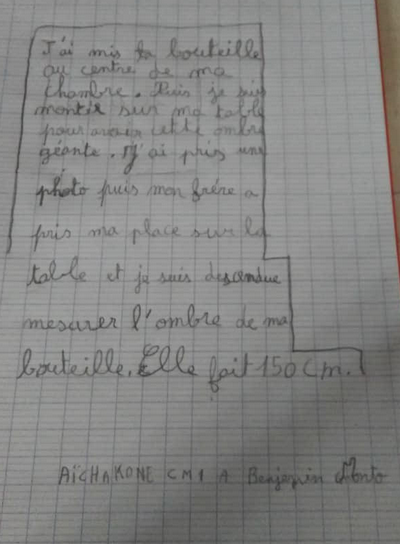 J'ai mis ta bouteille
au centre de ma
chambre. Puis je suis
montir sur ma table
pour avoir cette ombre
géante. J'ai pris une
photo puis mon frére a
pris ma place sur la
table et je suis descendue
mesurer l'ombre de ma
bouteille. Elle fait 150 cm.
AÏCHA KONE CM1 A Benjamin